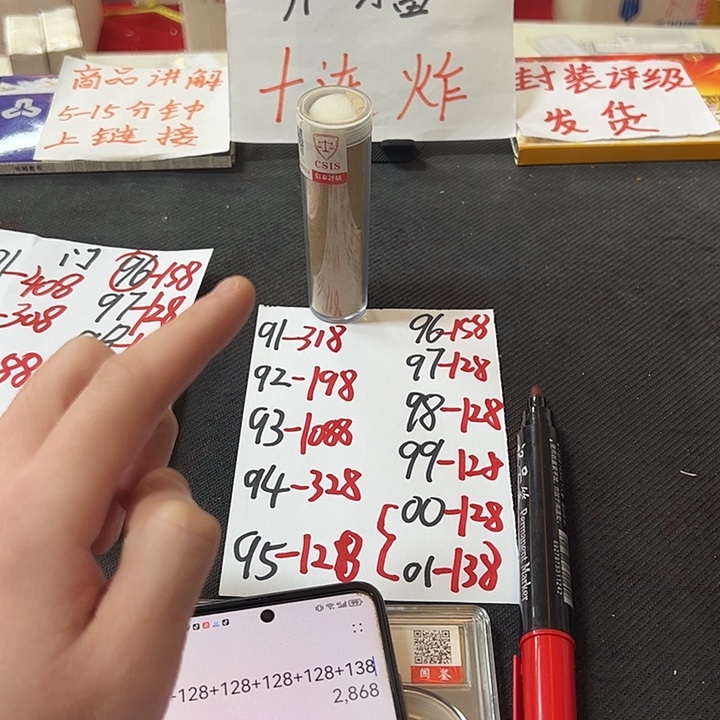 十连炸
商品讲解
5-15分钟
上链接
封装评级
发货
CSIS
96-158
-408
97-128
-308
91-318
92-198
93-1088
94-328
95-128
96-158
97-128
98-128
99-128
00-128
01-138
Permanent Marker
-128+128+128+128+138
2,868
国鉴